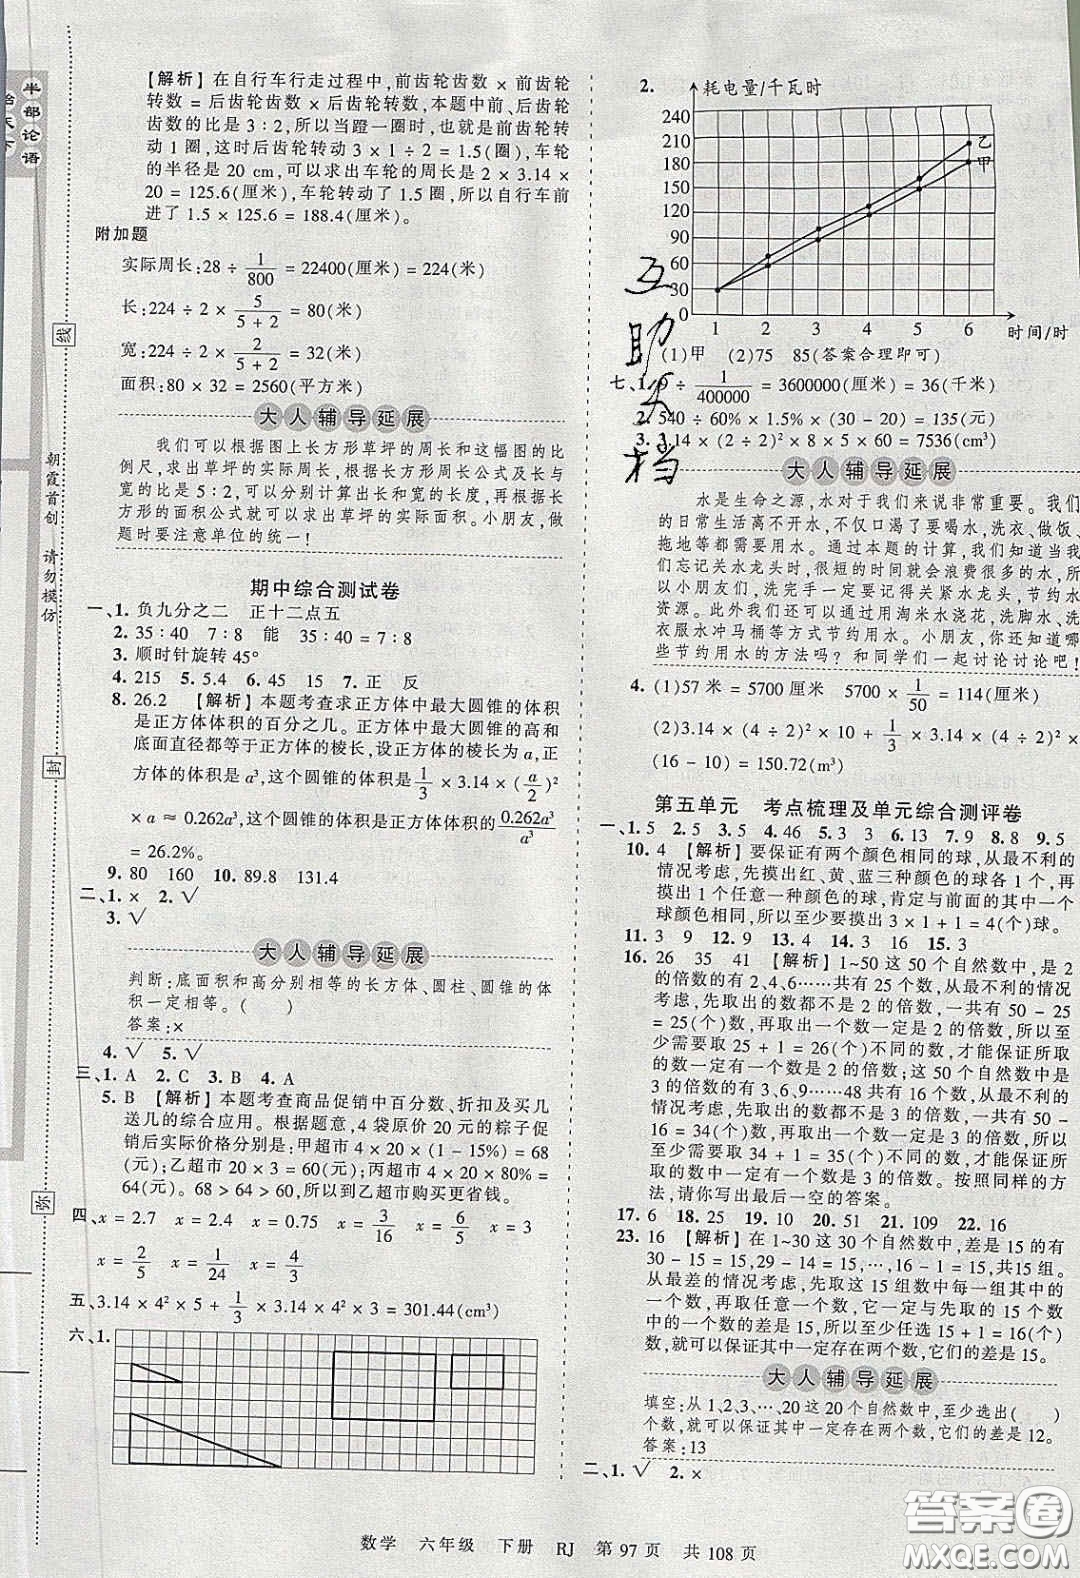 半部论语
治天下
线
封
弥
朝霞首创 请勿模仿
【解析】在自行车行走过程中,前齿轮齿数 × 前齿轮
转数 = 后齿轮齿数 × 后齿轮转数,本题中前、后齿轮
齿数的比是 3∶2,所以当蹬一圈时,也就是前齿轮转
动 1 圈,后齿轮转动 1 × 3 ÷ 2 = 1.5(圈),车轮
的半径是 20 cm,可以求出车轮的周长 2 × 3.14 ×
20 = 125.6(厘米),车轮转动了 1.5 圈,所以自行车前
进了 1.5 × 125.6 = 188.4(厘米)。
附加题
实际周长:28 ÷ 1/800 = 22400(厘米) = 224(米)
长:224 ÷ 2 × 5/(5 + 2) = 80(米)
宽:224 ÷ 2 × 2/(5 + 2) = 32(米)
面积:80 × 32 = 2560(平方米)
大人辅导延展
我们可以根据图上长方形草坪的周长和这幅图的比
例尺,求出草坪的实际周长,根据长方形周长公式及长与
宽的比是 5∶2,可以分别计算出长和宽的长度,再根据长
方形的面积公式就可以求出草坪的实际面积。小朋友,做
题时要注意单位的统一!
期中综合测试卷
一、1. 负九分之二 正十二点五
2. 35∶40 7∶8 能 35∶40 = 7∶8
3. 顺时针旋转 45°
4. 215 5. 5.4 6. 45 15 7. 正 反
8. 26.2 【解析】本题考查求正方体中最大圆锥的体积
是正方体体积的百分之几。正方体中最大圆锥的高和
底面直径都等于正方体的棱长,设正方体的棱长为 a,正
方体的体积是 a³,这个圆锥的体积是 1/3 × 3.14 × (a/2)²
× a ≈ 0.262a³,这个圆锥的体积是正方体体积的 0.262a³/a³
= 26.2%。
9. 80 160 10. 89.8 131.4
二、1. × 2. √
3. √
大人辅导延展
判断:底面积和高分别相等的长方体、圆柱、圆锥的体
积一定相等。( )
答案:×
4. √ 5. √
三、1. A 2. C 3. B 4. A
5. B 【解析】本题考查商品促销中百分数、折扣及买几
送几的综合应用。根据题意,4 袋原价 20 元的粽子促
销后实际价格分别是:甲超市 4 × 20 × (1 - 15%) = 68
(元);乙超市 20 × (4 - 1) + 4 = 64(元);丙超市 4 × 20 × 80% =
64(元)。68 > 64 > 60,所以到乙超市购买更省钱。
四、x = 2.7 x = 2.4 x = 0.75 x = 3/16 x = 6/5 x = 3
x = 2/5 x = 24/25 x = 4/3
五、3.14 × 4² × 5 + 1/3 × 3.14 × 4² × 3 = 301.44(cm³)
六、1.
2.
耗电量/千瓦时
240
210
180
150
120
90
60
30
0
乙
甲
1 2 3 4 5 6 时间/时
(1)甲 (2)75 85(答案合理即可)
七、1. 9 ÷ 1/400000 = 3600000(厘米) = 36(千米)
2. 540 ÷ 60% × 1.5% × (30 - 20) = 135(元)
3. 3.14 × (2 ÷ 2)² × 8 × 5 × 60 = 7536(cm³)
互助文档
大人辅导延展
水是生命之源,水对于我们来说非常重要。我们
的日常生活离不开水,不仅口渴了要喝水,洗衣、做饭、
拖地等都需要用水。通过本题的计算,我们知道当人们
忘记关水龙头时,很短的时间就会浪费很多的水,因此
小朋友们,洗完手一定要记得关紧水龙头,节约水
资源。此外我们还可以通过用淘米水浇花,洗脚水、洗
衣服水冲马桶等方式节约用水。小朋友,你还知道哪
些节约用水的方法吗?和同学们一起讨论讨论吧!
4. (1)57 米 = 5700 厘米 5700 × 1/50 = 114(厘米)
(2)3.14 × (4 ÷ 2)² × 10 + 1/3 × 3.14 × (4 ÷ 2)² ×
(16 - 10) = 150.72(m³)
第五单元 考点梳理及单元综合测评卷
一、1. 5 2. 5 3. 5 4. 46 5. 3 6. 13 7. 9 8. 8 9. 5
10. 4 【解析】要保证有两个颜色相同的球,从最不利的
情况考虑,先摸出红、黄、蓝三种颜色的球各 1 个,再
摸出 1 个任意一种颜色的球,肯定与前面的其中一个
球颜色相同,所以至少要摸出 3 × 1 + 1 = 4(个)球。
11. 3 9 12. 9 13. 4 14. 3 16 15. 3
16. 26 35 41 【解析】1~50 这 50 个自然数中,是 2
的倍数的有 2、4、6……共有 25 个数,从最不利的情况
考虑,先取出的数都不是 2 的倍数,一共有 50 - 25
= 25(个)数,再取出一个数一定是 2 的倍数,所以至
少要取 25 + 1 = 26(个)不同的数,才能保证所取
的数一定有一个数是 2 的倍数;这 50 个数中,是
3 的倍数的有 3、6、9……48 共有 16 个数,从最不利的
情况考虑,先取出的数都不是 3 的倍数,一共有 50 -
16 = 34(个)数,再取出一个数一定是 3 的倍数,所以
至少要取 34 + 1 = 35(个)不同的数,才能保证所
取的数中一定有一个数是 3 的倍数。按照同样的方
法,请你写出最后一空的答案。
17. 6 18. 25 19. 10 20. 51 21. 109 22. 16
23. 16 【解析】在 1~30 这 30 个自然数中,差是 15 的有
30 - 15 = 15,29 - 14 = 15,…,16 - 1 = 15,共 15 组。
从最差的情况考虑,取出这 15 组数中每一组其中的
一个数,再任意取一个数,它一定与先取的 15 个数中
的一个数的差是 15,所以至少任选 15 + 1 = 16(个)
数,就可以保证其中一定存在两个数,它们的差是 15。
大人辅导延展
填空:从 1、2、3、…、20 这 20 个自然数中,至少选出( )
个数,就可以保证其中一定存在两个数,它们的差是 12。
答案:13
二、1. √ 2. ×
数学 六年级 下册 RJ 第 97 页 共 108 页
答案圈
MXQE.COM